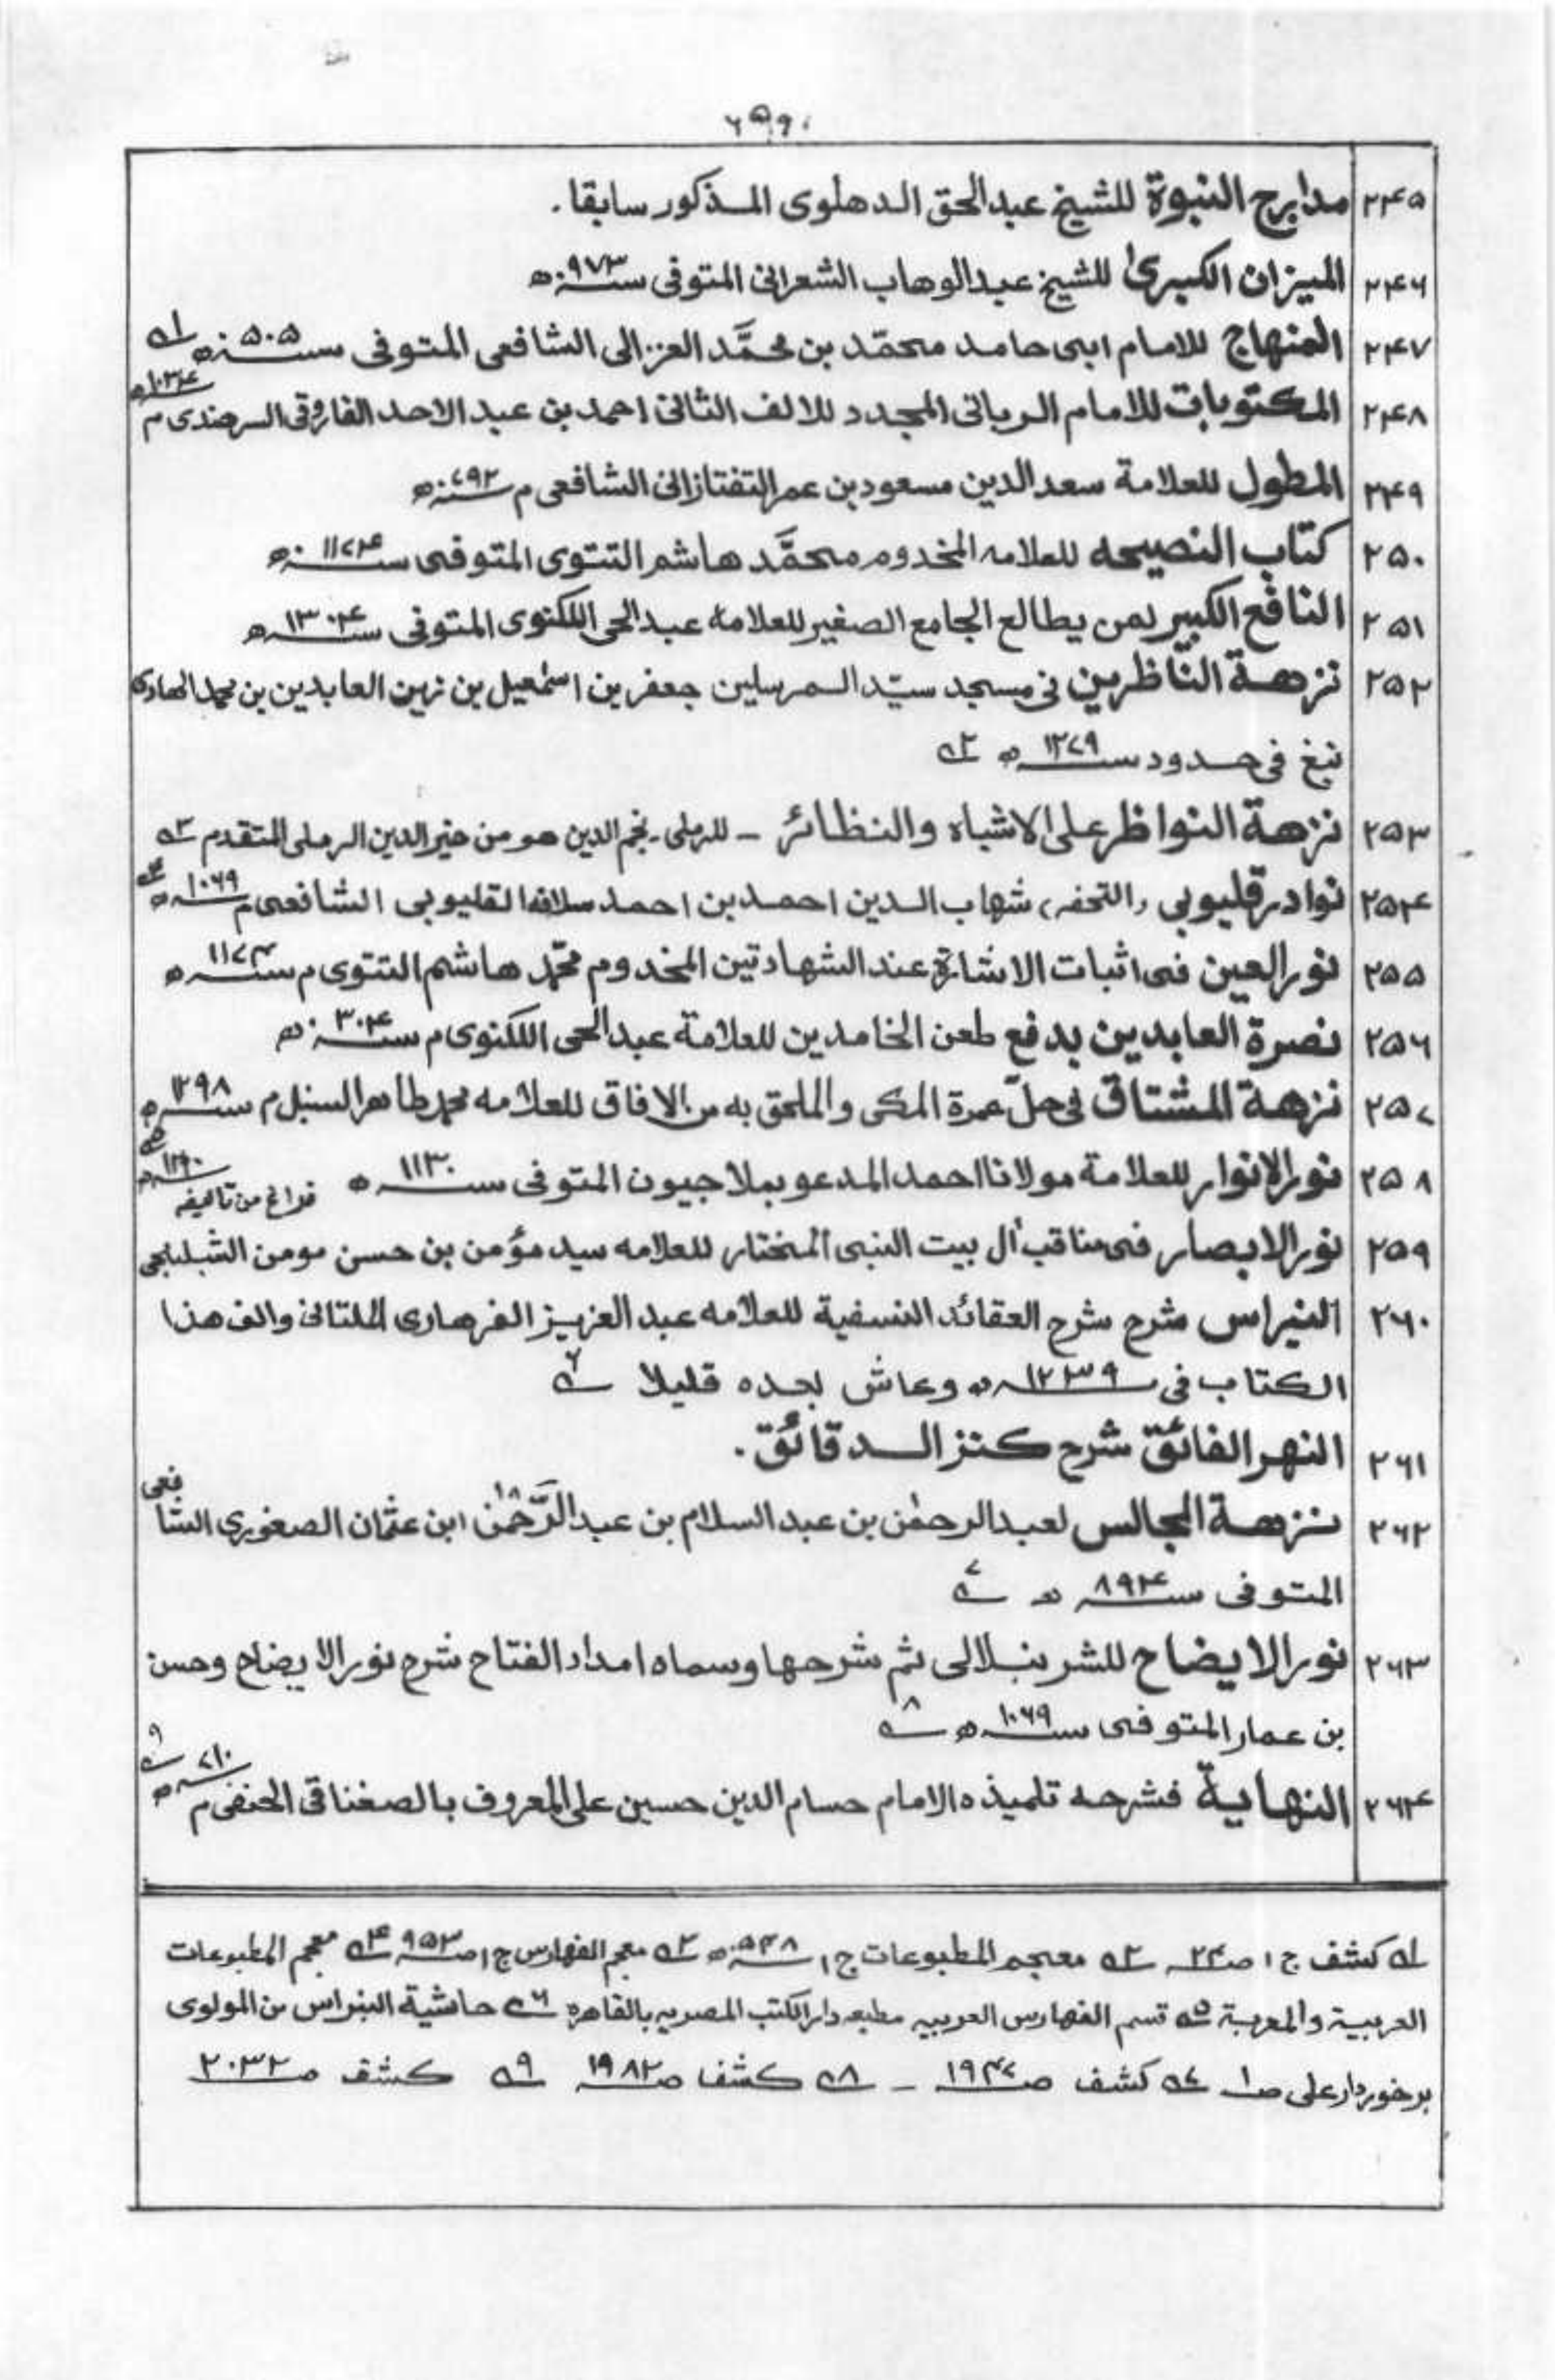 ۲۴۵ مدارج النبوة للشيخ عبدالحق الدهلوى المذكور سابقا .
۲۴۶ الميزان الكبرىٰ للشيخ عبدالوهاب الشعرانى المتوفى سنہ ۹۷۳ھ
۲۴۷ المنهاج للامام ابى حامد محمّد بن محمَّد الغزالى الشافعى المتوفى سنہ ۵۰۵ھ ١ے
۲۴۸ المكتوبات للامام الربانى المجدد للالف الثانى احمد بن عبد الاحد الفاروقى السرهندى م ۱۰۳۴ھ
۲۴۹ المطول للعلامة سعد الدين مسعود بن عمر التفتازانى الشافعى م سنہ ۷۹۲ھ
۲۵۰ كتاب النصيحه للعلامه المخدوم محمَّد هاشم التتوى المتوفى سنہ ۱۱۷۴ھ
۲۵۱ النافع الكبير لمن يطالع الجامع الصغير للعلامة عبدالحى اللكنوى المتوفى سنہ ۱۳۰۴ھ
۲۵۲ نزهة النّاظرين فى مسجد سيّد المرسلين جعفر بن اسمٰعيل بن زين العابدين بن محمد الهادى
نبغ فى حدود سنہ ۱۲۷۹ھ ۲ے
۲۵۳ نزهة النواظر على الاشباه والنظائر - للرملى - نجم الدين هو من خير الدين الرملى المتقدم ۳ے
۲۵۴ نوادر قليوبى (التحفه) شهاب الدين احمد بن احمد سلافه القليوبى الشافعى م ۱۰۶۹ھ ۴ے
۲۵۵ نور العين فى اثبات الاشارة عند الشهادتين المخدوم محمّد هاشم التتوى م سنہ ۱۱۷۴ھ
۲۵۶ نصرة العابدين بدفع طعن الخامدين للعلامة عبدالحى اللكنوى م سنہ ۳۰۴ھ
۲۵۷ نزهة المشتاق فى حلّ عمرة المكى والملحق به من الافاق للعلامه محمد طاهر السنبل م سنہ ۱۲۹۸ھ ۵ے
۲۵۸ نور الانوار للعلامة مولانا احمد المدعو بملاجيون المتوفى سنہ ۱۱۳۰ھ فراغ من تاليفه ۱۲۹۰ھ
۲۵۹ نور الابصار فى مناقب اٰل بيت النبى المختار للعلامه سيد مؤمن بن حسن مومن الشبلنجى
۲۶۰ النبراس شرح شرح العقائد النسفية للعلامه عبد العزيز الفرهارى الملتانى والف هذا
الكتاب فى سنہ ۱۲۳۹ھ وعاش بعده قليلا ۶ے
۲۶۱ النهر الفائق شرح كنز الدقائق .
۲۶۲ نزهة المجالس لعبد الرحمٰن بن عبد السلام بن عبد الرَّحمٰن ابن عثمان الصفورى الشافعى
المتوفى سنہ ۸۹۴ھ ۷ے
۲۶۳ نور الايضاح للشرنبلالى ثم شرحها وسماه امداد الفتاح شرح نور الايضاح وحسن
بن عمار المتوفى سنہ ۱۰۶۹ھ ۸ے
۲۶۴ النهاية فشرحه تلميذه الامام حسام الدين حسين على المعروف بالصغناقى الحنفى م ۷۱۰ھ ۹ے
١ے كشف ج ۱ ص۲۴ ۲ے معجم المطبوعات ج ۱ ۵۴۸ ۳ے معجم الفهارس ج ۱ ص۹۵۳ ۴ے معجم المطبوعات
العربية والمعربة ۵ے قسم الفهارس العربيه مطبعه دار الكتب المصريه بالقاهرة ۶ے حاشية النبراس من المولوى
برخوردار على ص۱ ۷ے كشف ص۱۹۴۷ - ۸ے كشف ص۱۹۸۲ ۹ے كشف ص۲۰۳۲